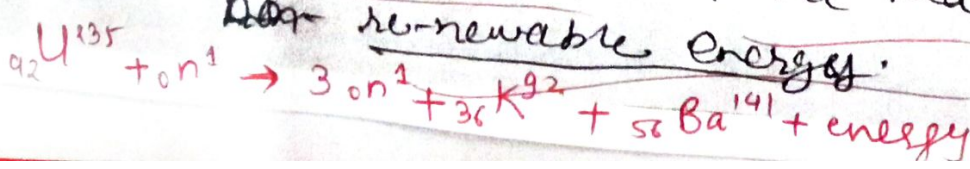 Non-renewable energy.
₉₂U²³⁵ + ₀n¹ → 3 ₀n¹ + ₃₆K⁹² + ₅₆Ba¹⁴¹ + energy